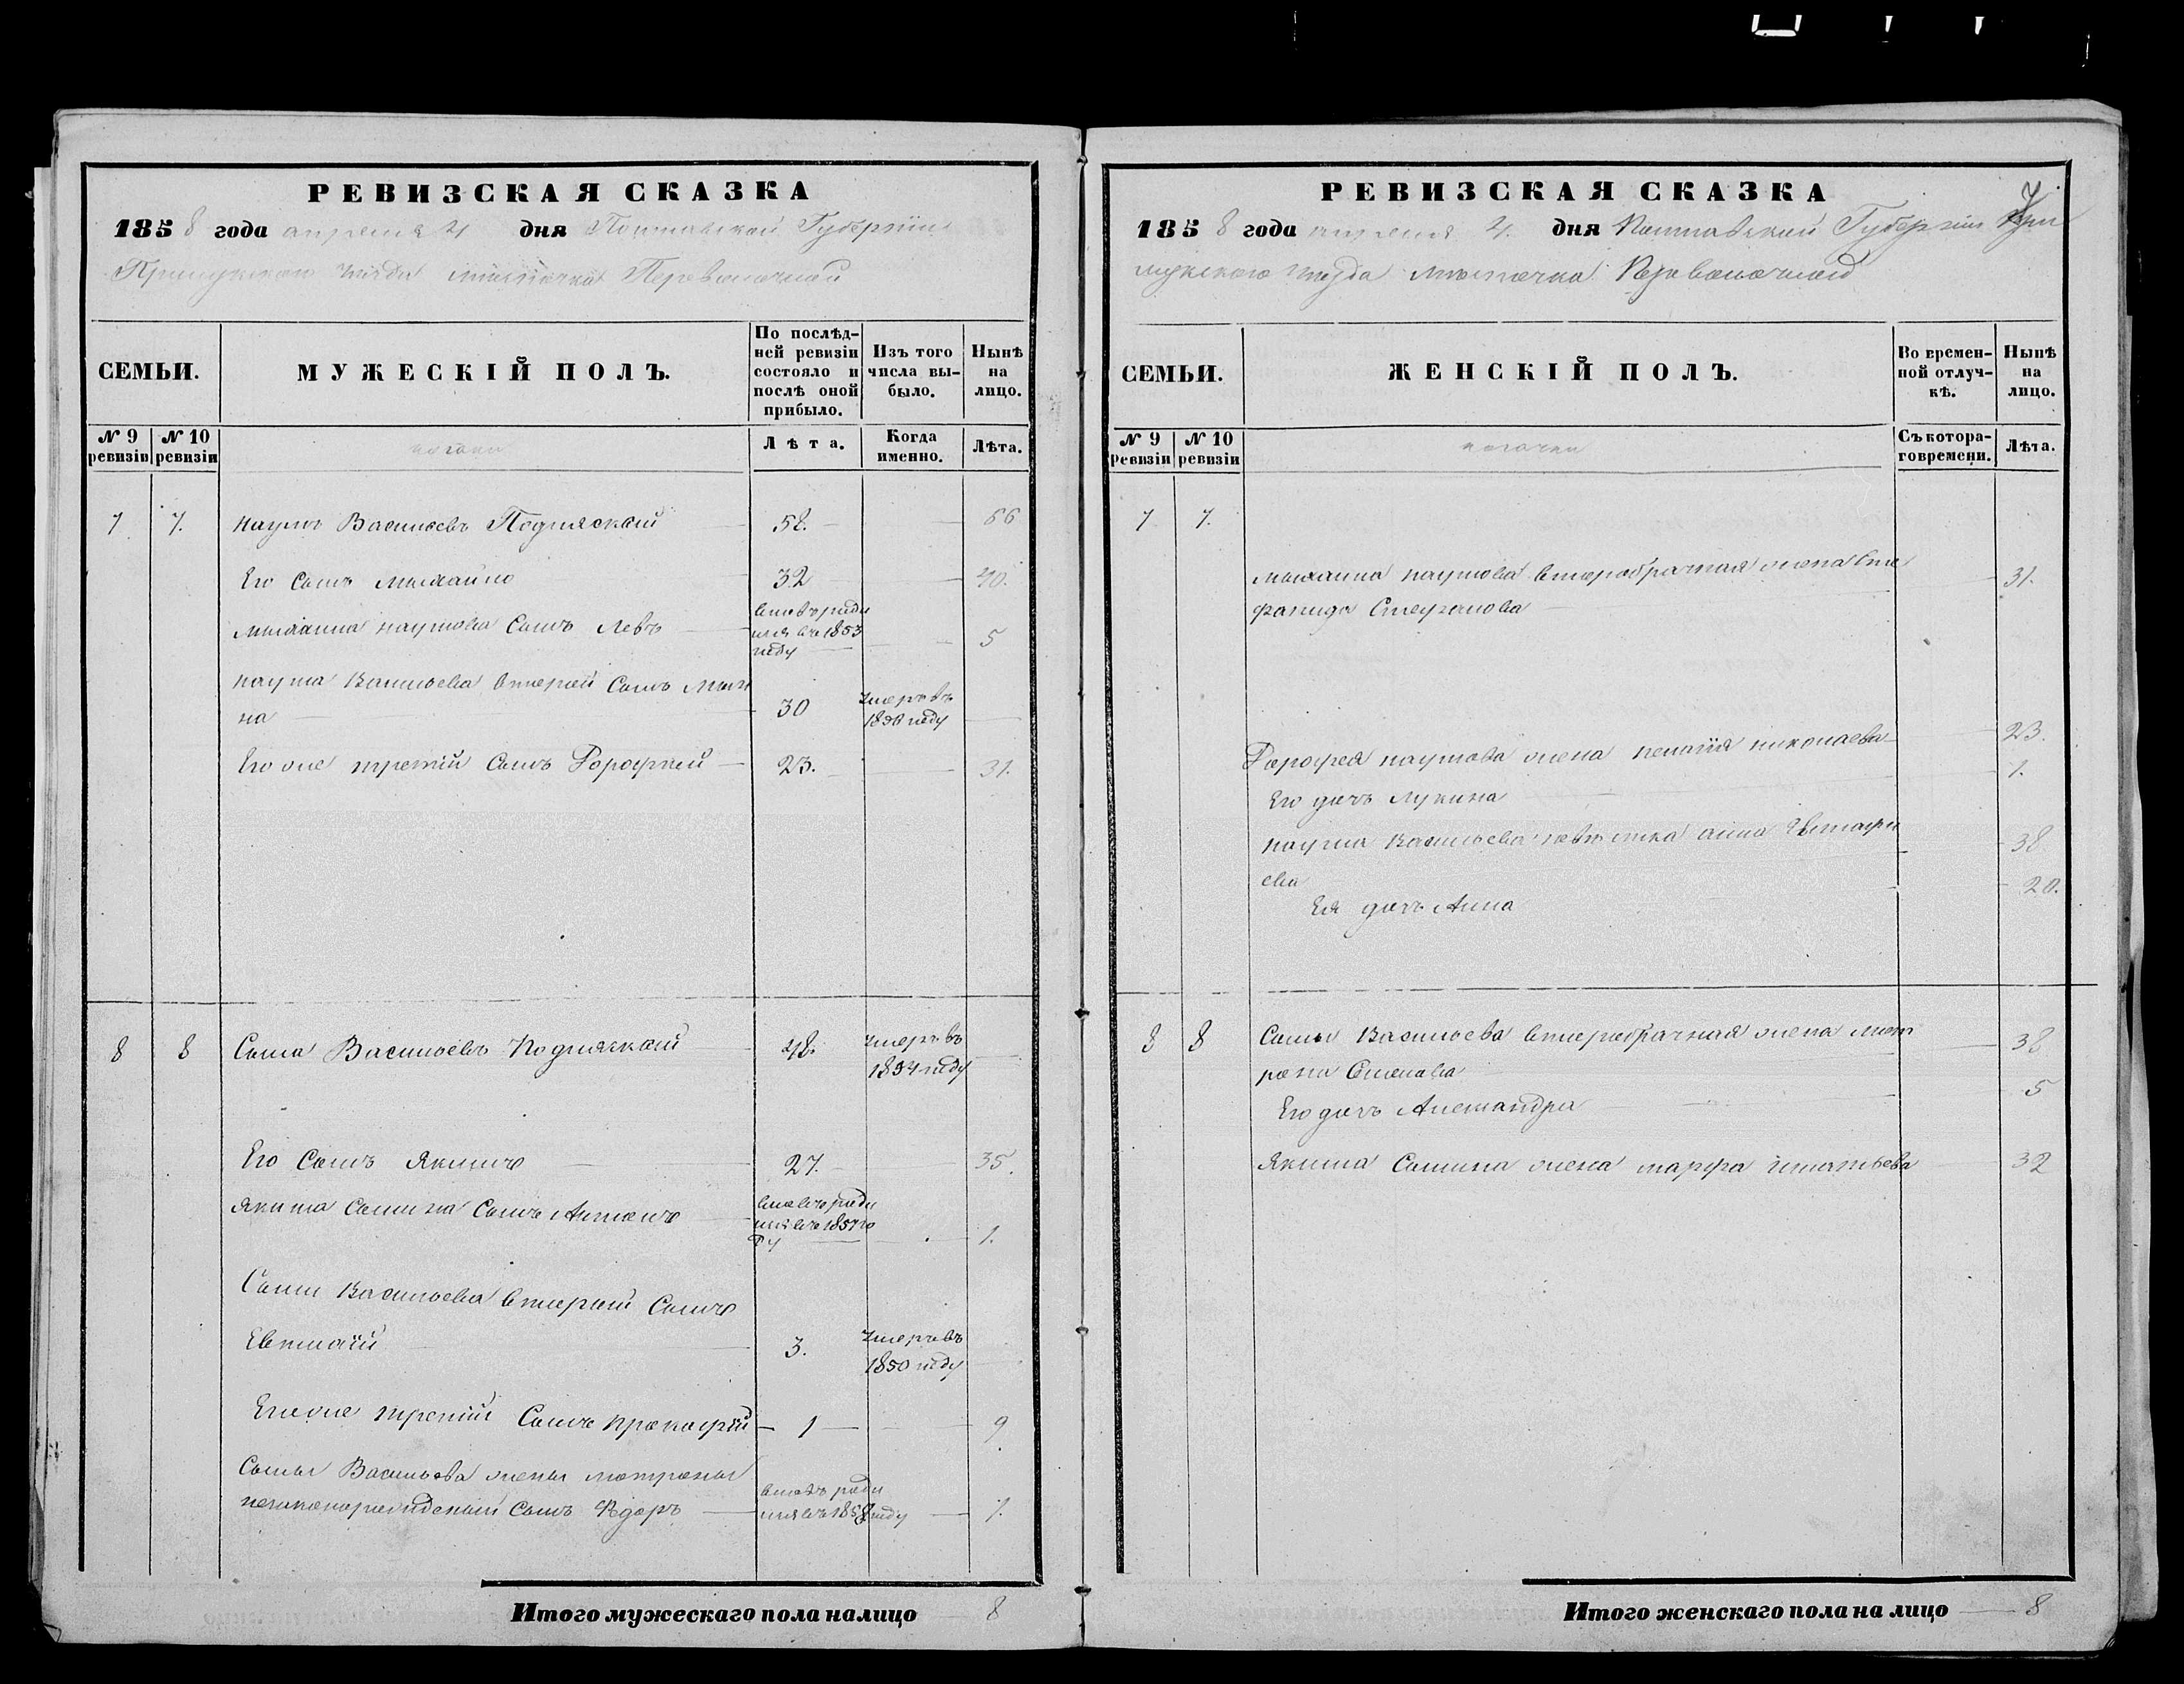 РЕВИЗСКАЯ СКАЗКА
1858 года апреля 4 дня Полтавской Губерніи
Прилуцкого уѣзда мистечка Переволочной
СЕМЬИ.
МУЖЕСКІЙ ПОЛЪ.
По послѣд-
ней ревизіи
состояло и
послѣ оной
прибыло.
Изъ того
числа вы-
было.
Нынѣ
на
лицо.
№ 9
ревизіи
№ 10
ревизіи
козаки
Лѣта.
Когда
именно.
Лѣта.
7 7. Наумъ Васильевъ 58. 66
Его Сынъ Михайло 32 40.
Михаила Наумова Сынъ Левъ 5
вновь роди
лся въ 1853
году
Наума Васильева вторый Сынъ Мы
на 30
умеръ въ
году
Его же третій Сынъ Дорофей 23. 31.
8 8 Сыса Васильевъ 48.
умеръ въ
1854 году
Его Сынъ Якимъ 27. 35.
Якима Сысина Сынъ Антонъ 1.
вновь роди
лся въ 1857 го
ду
Сысы Васильева вторый Сынъ
Евтихій 3.
умеръ въ
1850 году
Его же третій Сынъ Прокофій 1 9
Сысы Васильева жены Матроны
незаконорожденый Сынъ Ѳедоръ
вновь роди
лся въ 1858 году
Итого мужескаго пола налицо 8
РЕВИЗСКАЯ СКАЗКА 7
1858 года апреля 4. дня Полтавской Губерніи При
луцкого уезда мѣстечка Переволочной
СЕМЬИ.
ЖЕНСКІЙ ПОЛЪ.
Во времен-
ной отлуч-
кѣ.
Нынѣ
на
лицо.
№ 9
ревизіи
№ 10
ревизіи
козачки
Съ котора-
го времени.
Лѣта.
7 7.
Михаила Наумова второбрачная жена Сте
фанида Степанова 31.
Дорофея Наумова жена Пелагія Николаева 23.
Его дочь Лукина 1.
Наума Васильева невѣстка Анна Евстафи
ева 38
Ея дочь Анна 20.
8 8 Сысы Васильева второбрачная жена Мат
рона Семенова 38
Его дочь Александра 5
Якима Сысина жена Марфа Игнатьева 32
Итого женскаго пола на лицо 8